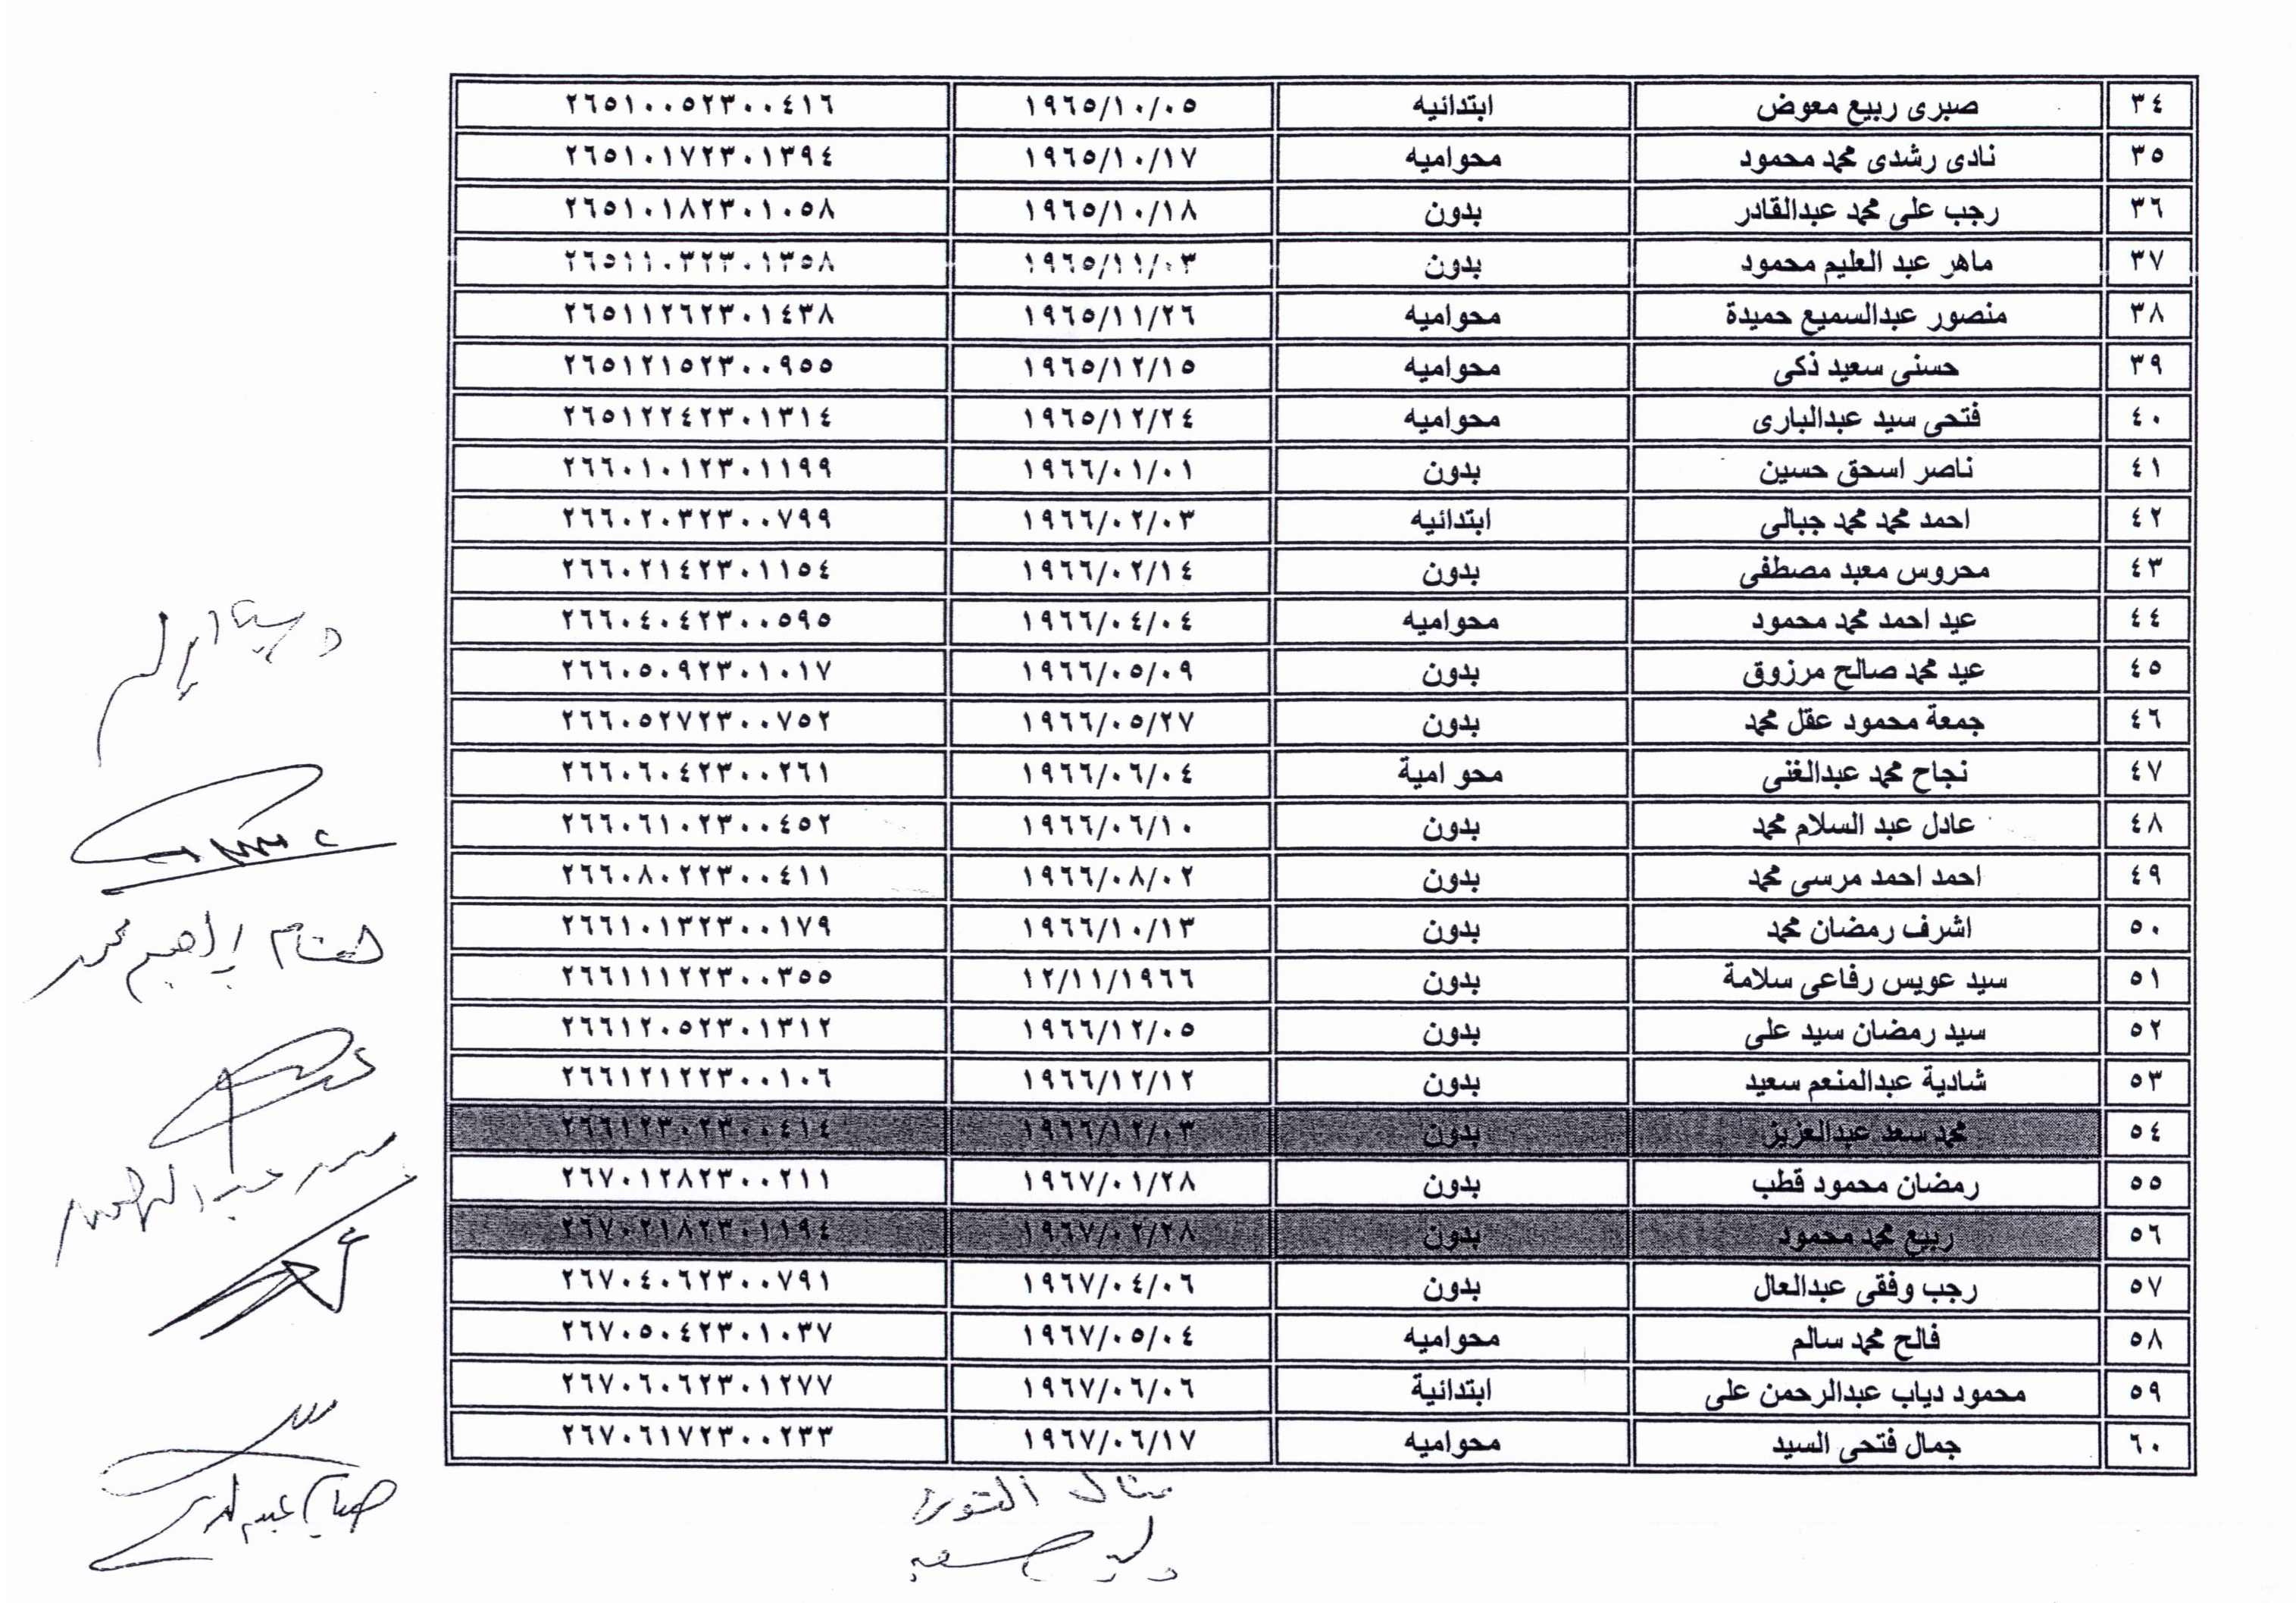 ٣٤ صبرى ربيع معوض ابتدائيه ١٩٦٥/١٠/٠٥ ٢٦٥١٠٠٥٢٣٠٠٤١٦
٣٥ نادى رشدى محمد محمود محواميه ١٩٦٥/١٠/١٧ ٢٦٥١٠١٧٢٣٠١٣٩٤
٣٦ رجب على محمد عبدالقادر بدون ١٩٦٥/١٠/١٨ ٢٦٥١٠١٨٢٣٠١٠٥٨
٣٧ ماهر عبد العليم محمود بدون ١٩٦٥/١١/٠٣ ٢٦٥١١٠٣٢٣٠١٣٥٨
٣٨ منصور عبدالسميع حميدة محواميه ١٩٦٥/١١/٢٦ ٢٦٥١١٢٦٢٣٠١٤٣٨
٣٩ حسنى سعيد ذكى محواميه ١٩٦٥/١٢/١٥ ٢٦٥١٢١٥٢٣٠٠٩٥٥
٤٠ فتحى سيد عبدالبارى محواميه ١٩٦٥/١٢/٢٤ ٢٦٥١٢٢٤٢٣٠١٣١٤
٤١ ناصر اسحق حسين بدون ١٩٦٦/٠١/٠١ ٢٦٦٠١٠١٢٣٠١١٩٩
٤٢ احمد محمد محمد جبالى ابتدائيه ١٩٦٦/٠٢/٠٣ ٢٦٦٠٢٠٣٢٣٠٠٧٩٩
٤٣ محروس معبد مصطفى بدون ١٩٦٦/٠٢/١٤ ٢٦٦٠٢١٤٢٣٠١١٥٤
٤٤ عيد احمد محمد محمود محواميه ١٩٦٦/٠٤/٠٤ ٢٦٦٠٤٠٤٢٣٠٠٥٩٥
٤٥ عيد محمد صالح مرزوق بدون ١٩٦٦/٠٥/٠٩ ٢٦٦٠٥٠٩٢٣٠١٠١٧
٤٦ جمعة محمود عقل محمد بدون ١٩٦٦/٠٥/٢٧ ٢٦٦٠٥٢٧٢٣٠٠٧٥٢
٤٧ نجاح محمد عبدالغنى محو امية ١٩٦٦/٠٦/٠٤ ٢٦٦٠٦٠٤٢٣٠٠٢٦١
٤٨ عادل عبد السلام محمد بدون ١٩٦٦/٠٦/١٠ ٢٦٦٠٦١٠٢٣٠٠٤٥٢
٤٩ احمد احمد مرسى محمد بدون ١٩٦٦/٠٨/٠٢ ٢٦٦٠٨٠٢٢٣٠٠٤١١
٥٠ اشرف رمضان محمد بدون ١٩٦٦/١٠/١٣ ٢٦٦١٠١٣٢٣٠٠١٧٩
٥١ سيد عويس رفاعى سلامة بدون ١٢/١١/١٩٦٦ ٢٦٦١١١٢٢٣٠٠٣٥٥
٥٢ سيد رمضان سيد على بدون ١٩٦٦/١٢/٠٥ ٢٦٦١٢٠٥٢٣٠١٣١٢
٥٣ شادية عبدالمنعم سعيد بدون ١٩٦٦/١٢/١٢ ٢٦٦١٢١٢٢٣٠٠١٠٦
٥٤ محمد سعد عبدالعزيز بدون ١٩٦٦/١٢/٠٣ ٢٦٦١٢٣٠٢٣٠٠٤١٤
٥٥ رمضان محمود قطب بدون ١٩٦٧/٠١/٢٨ ٢٦٧٠١٢٨٢٣٠٠٢١١
٥٦ ربيع محمد محمود بدون ١٩٦٧/٠٢/٢٨ ٢٦٧٠٢١٨٢٣٠١١٩٤
٥٧ رجب وفقى عبدالعال بدون ١٩٦٧/٠٤/٠٦ ٢٦٧٠٤٠٦٢٣٠٠٧٩١
٥٨ فالح محمد سالم محواميه ١٩٦٧/٠٥/٠٤ ٢٦٧٠٥٠٤٢٣٠١٠٣٧
٥٩ محمود دياب عبدالرحمن على ابتدائية ١٩٦٧/٠٦/٠٦ ٢٦٧٠٦٠٦٢٣٠١٢٧٧
٦٠ جمال فتحى السيد محواميه ١٩٦٧/٠٦/١٧ ٢٦٧٠٦١٧٢٣٠٠٢٣٣
هشام إبراهيم محمد